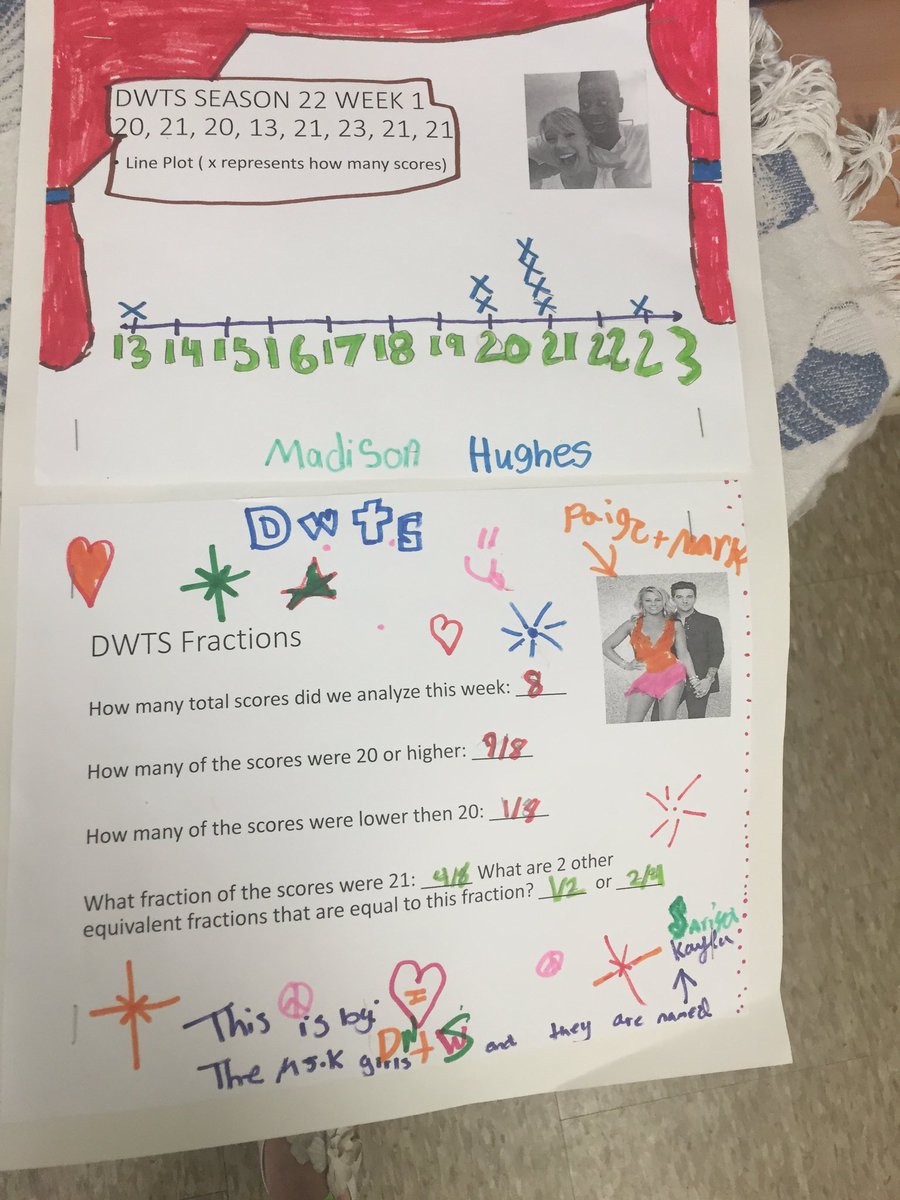 DWTS SEASON 22 WEEK 1
20, 21, 20, 13, 21, 23, 21, 21
• Line Plot ( x represents how many scores)
x x x x x x x x
13 14 15 16 17 18 19 20 21 22 23
Madison Hughes
DWTS
Paige + Mark
DWTS Fractions
How many total scores did we analyze this week: 8
How many of the scores were 20 or higher: 7/8
How many of the scores were lower then 20: 1/8
What fraction of the scores were 21: 4/8 What are 2 other
equivalent fractions that are equal to this fraction? 1/2 or 2/4
Kayla
This is by:
The girls and they are named
DWTS